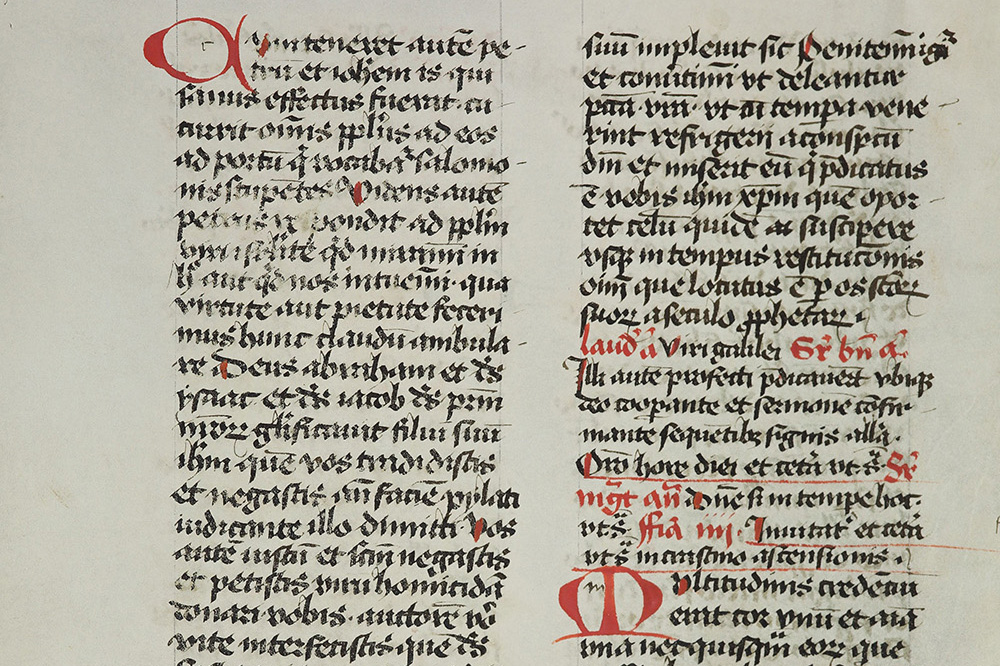 Cum teneret autē pe-
trū et ioh̄em is qui
sanus effectus fuerat · cu
currit om̄is pplūs ad eos
ad portū q̄ vocabat̄ salomo-
nis stupētes Videns autē
petrus re pondit ad pplm̄
viri israelite q̄d miramini in
h̄ aut q̄d nos intuemi · qua
virtute aut pietate feceri
mus hunc claudū ambula-
re Deus abraham et ds̄
ysaac et ds̄ iacob ds̄ prm̄
nror̄ glificauit filiū suū
ihm̄ quē vos tradidistis
et negastis an̄ faciē pylati
iudicante illo dimitti Vos
autē iustū et scm̄ negastis
et petistis virū homicidā
donari vobis · auctorē vo᷑
vite interfecistis quē ds̄
suū impleuit sic Penitemī igr̄
et conūtimī vt deleantur
pctā vrā · vt cū tempa vene-
rint refrigerii a cōspectu
dnī et miserit eū q̄ pdicatus
ē vobis ihm̄ xp̄m quē opor-
tet celū quidē suscipere
vsq̄ in tempus restitucōnis
oim̄ que locutus ē p os sctor̄
suor̄ a seculo pphetar̄ ·
laud̄ a᷑ Viri galilei Sr̄ bn̄ a᷑
Illi autē profecti pdicauert̄ vbiq̄
deo coopante et sermonē cōfir-
mante sequētibȝ signis all̄a ·
Orō hore diei et cetā vt s᷑ Sr̄
mgt̄ an̄ Dn̄e si in tempe hoc ·
vt s᷑ ffīa iiij · Inuitat᷑ et cetā
vt s᷑ in crastino ascensionis ·
Multitudinis credeciū
erat cor vnū et aīa
vna nec quisquā eor̄ que